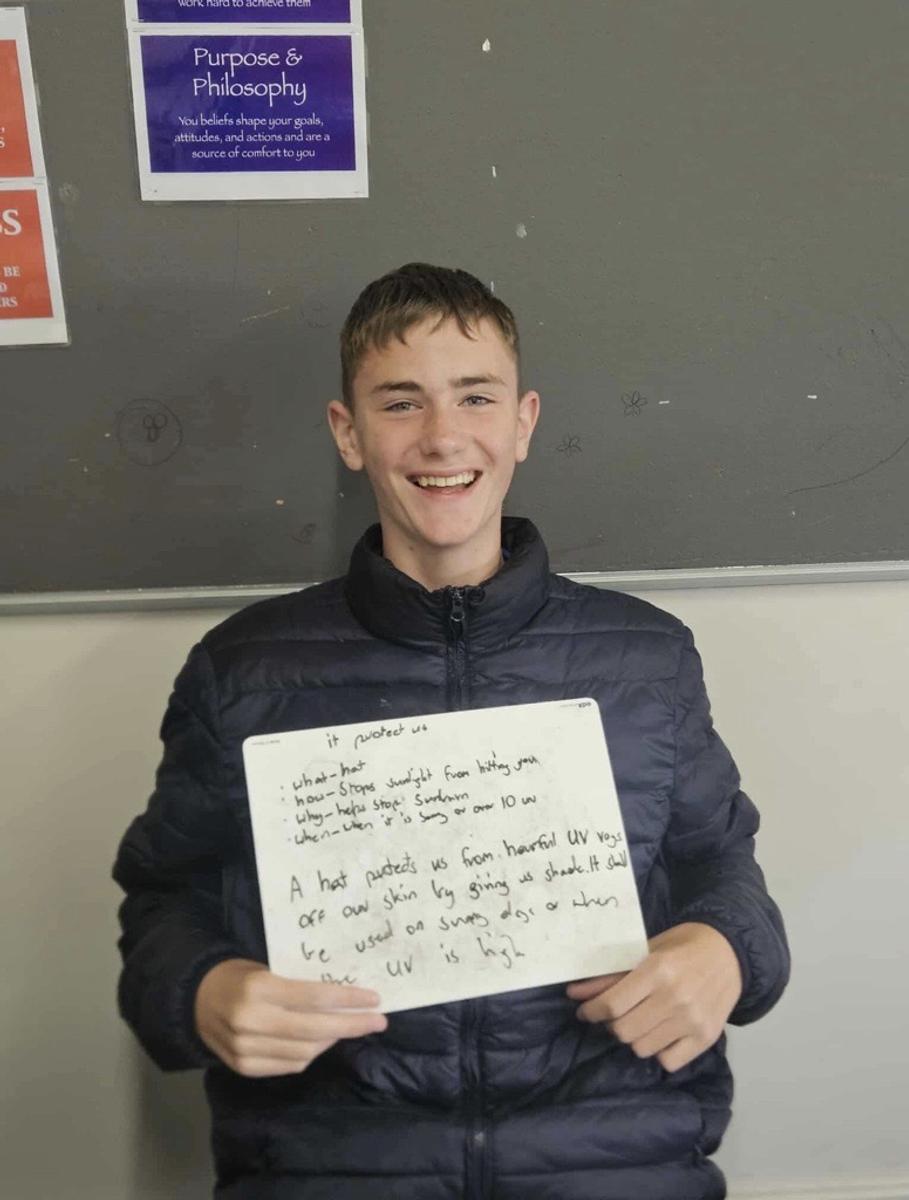 work hard to achieve them
Purpose &
Philosophy
You beliefs shape your goals,
attitudes, and actions and are a
source of comfort to you
SS
BE
RS
it protect us
· what-hat
· how-Stops sunlight from hitting you
· why-helps stop sunburn
· when-when it is sunny or over 10 uv
A hat protects us from harmful UV rays
off our skin by giving us shade. It should
be used on sunny days or when
the UV is high